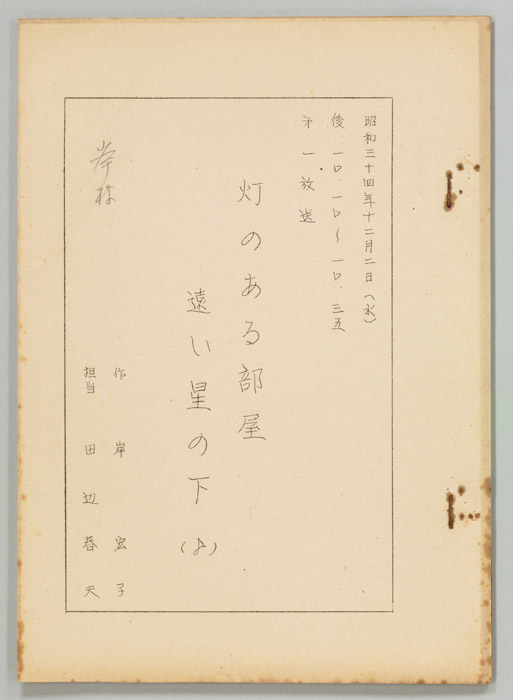 昭和三十四年十二月二日（水）
後 一〇．一〇～一〇．三五
第一放送
灯のある部屋
遠い星の下
作 岸 宏子
担当 田辺 春天
岸様